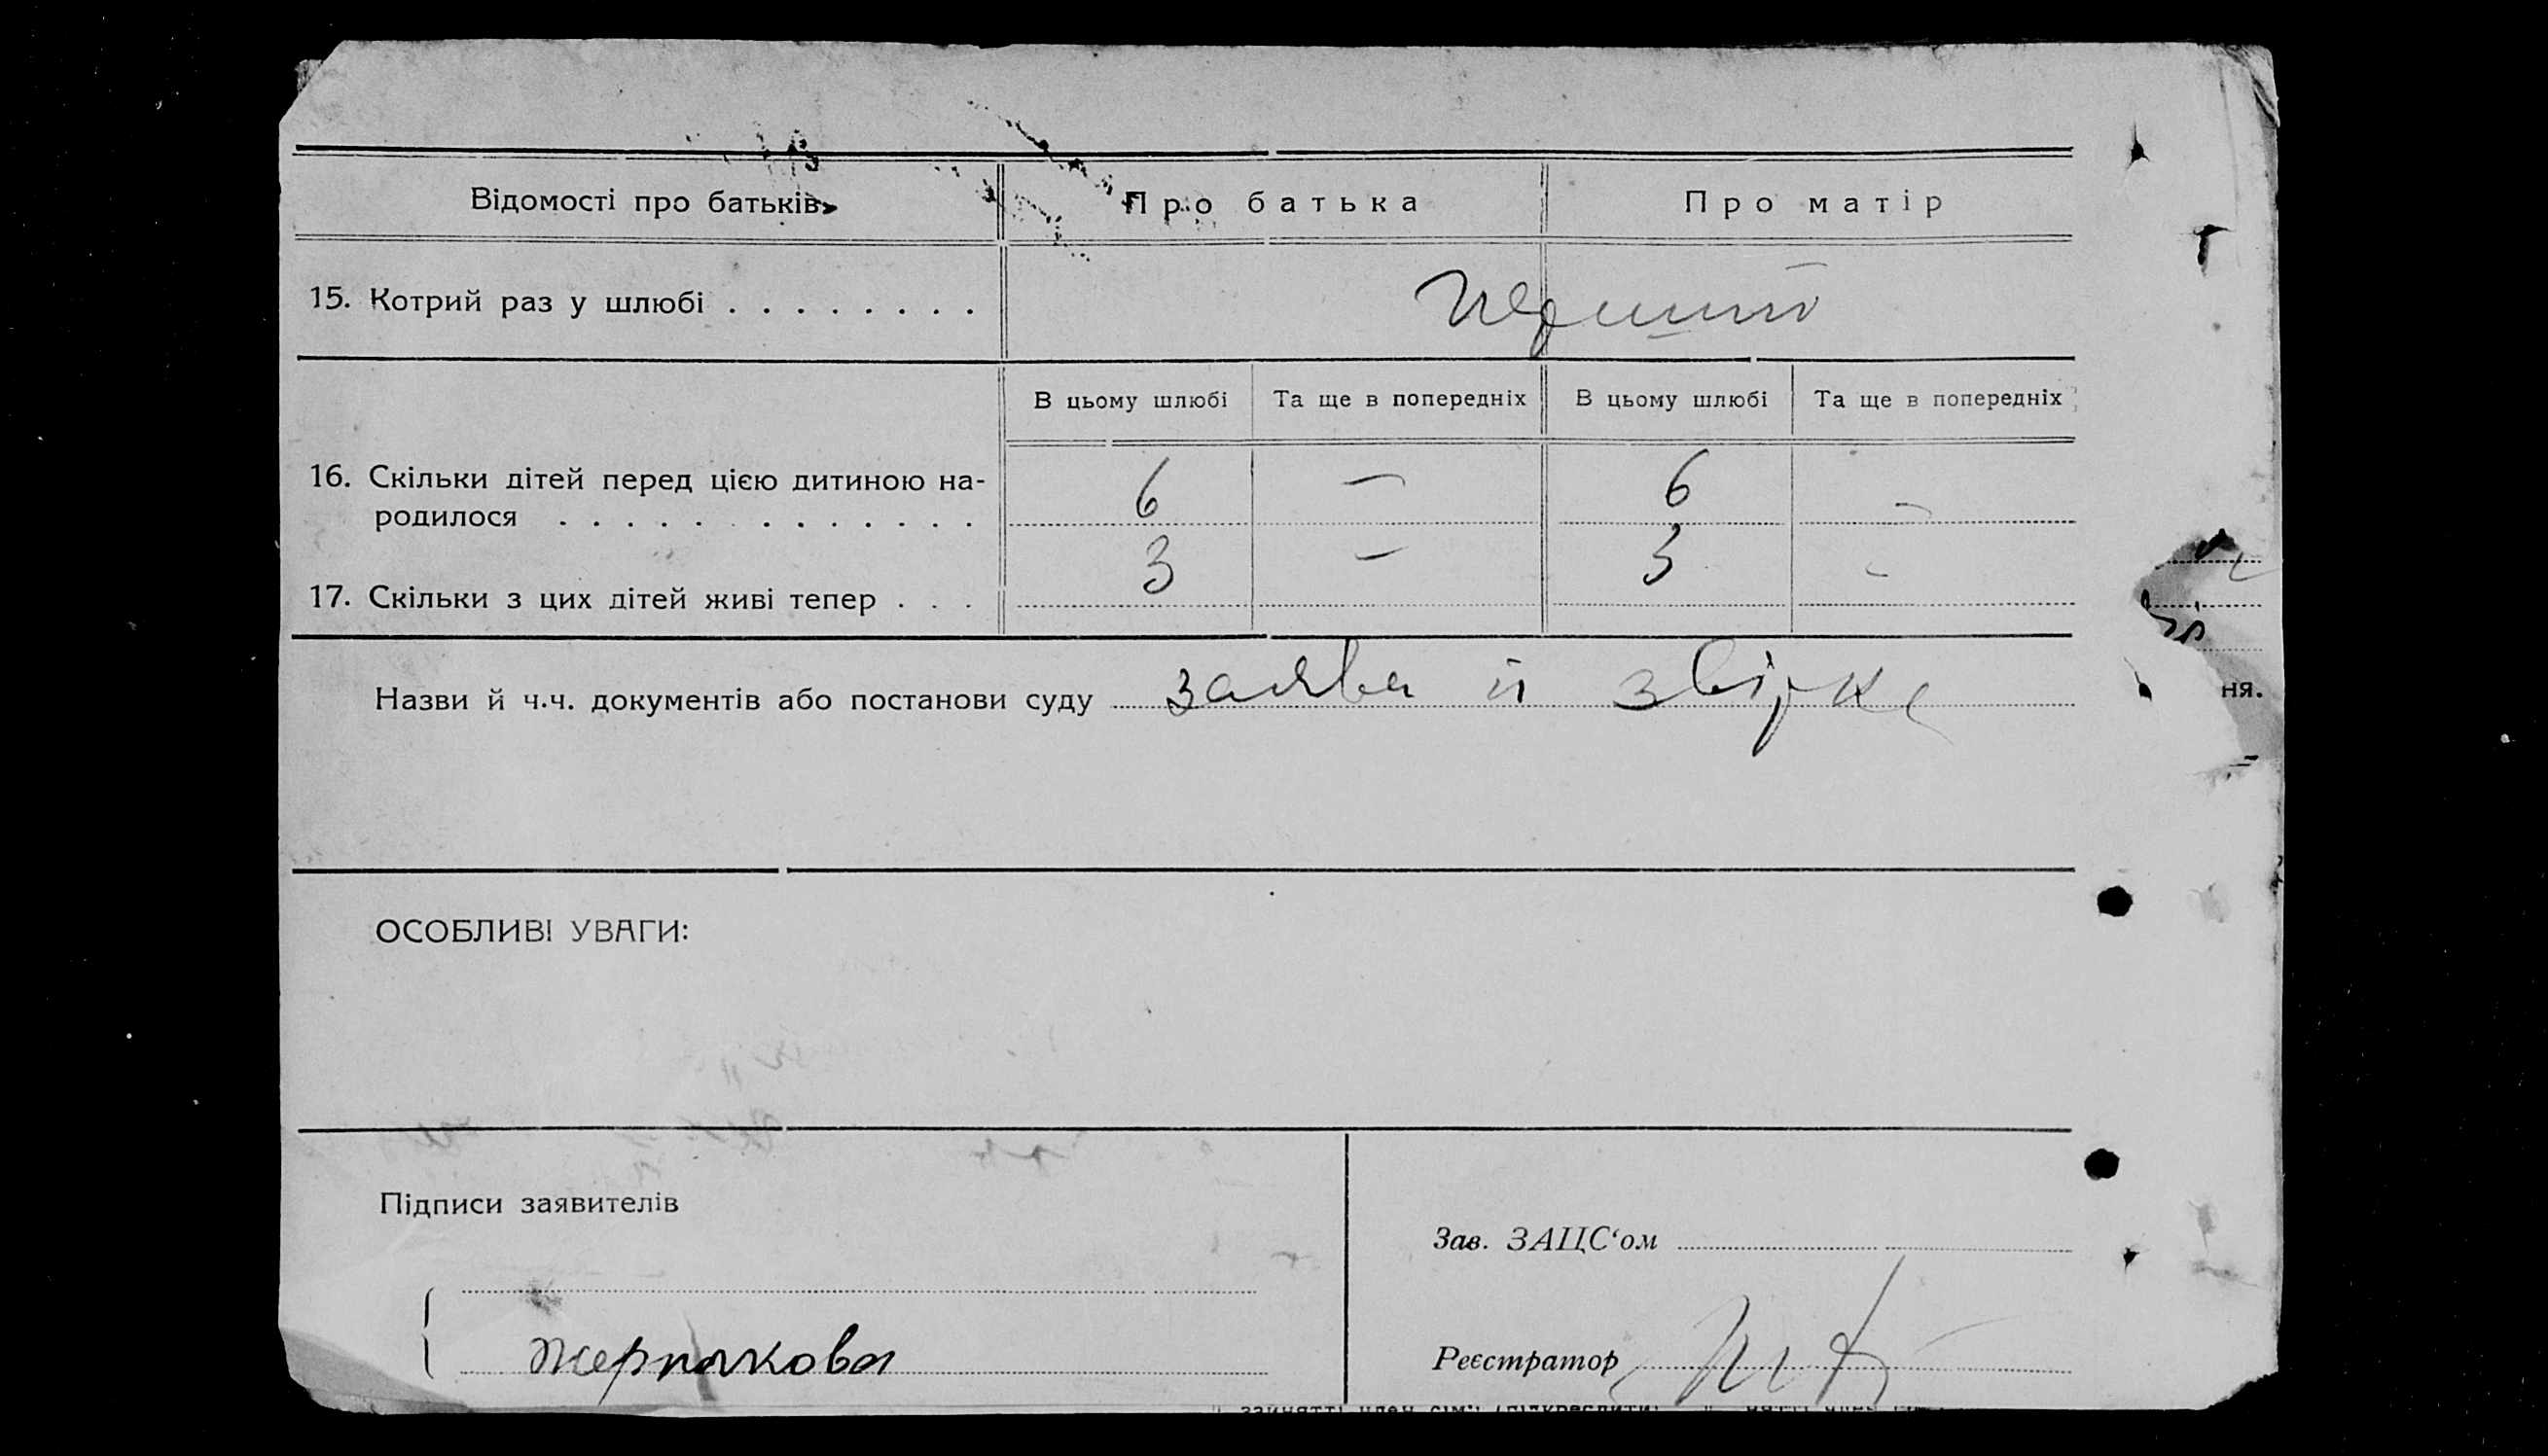 Відомості про батьків Про батька Про матір
15. Котрий раз у шлюбі . . . . . . . . перший
В цьому шлюбі Та ще в попередніх В цьому шлюбі Та ще в попередніх
16. Скільки дітей перед цією дитиною на-
родилося . . . . . . . . . . . . 6 — 6 —
17. Скільки з цих дітей живі тепер . . . 3 — 3 —
Назви й ч.ч. документів або постанови суду заява й звірка
ня.
ОСОБЛИВІ УВАГИ:
Підписи заявителів
Зав. ЗАЦС‘ом
Реєстратор